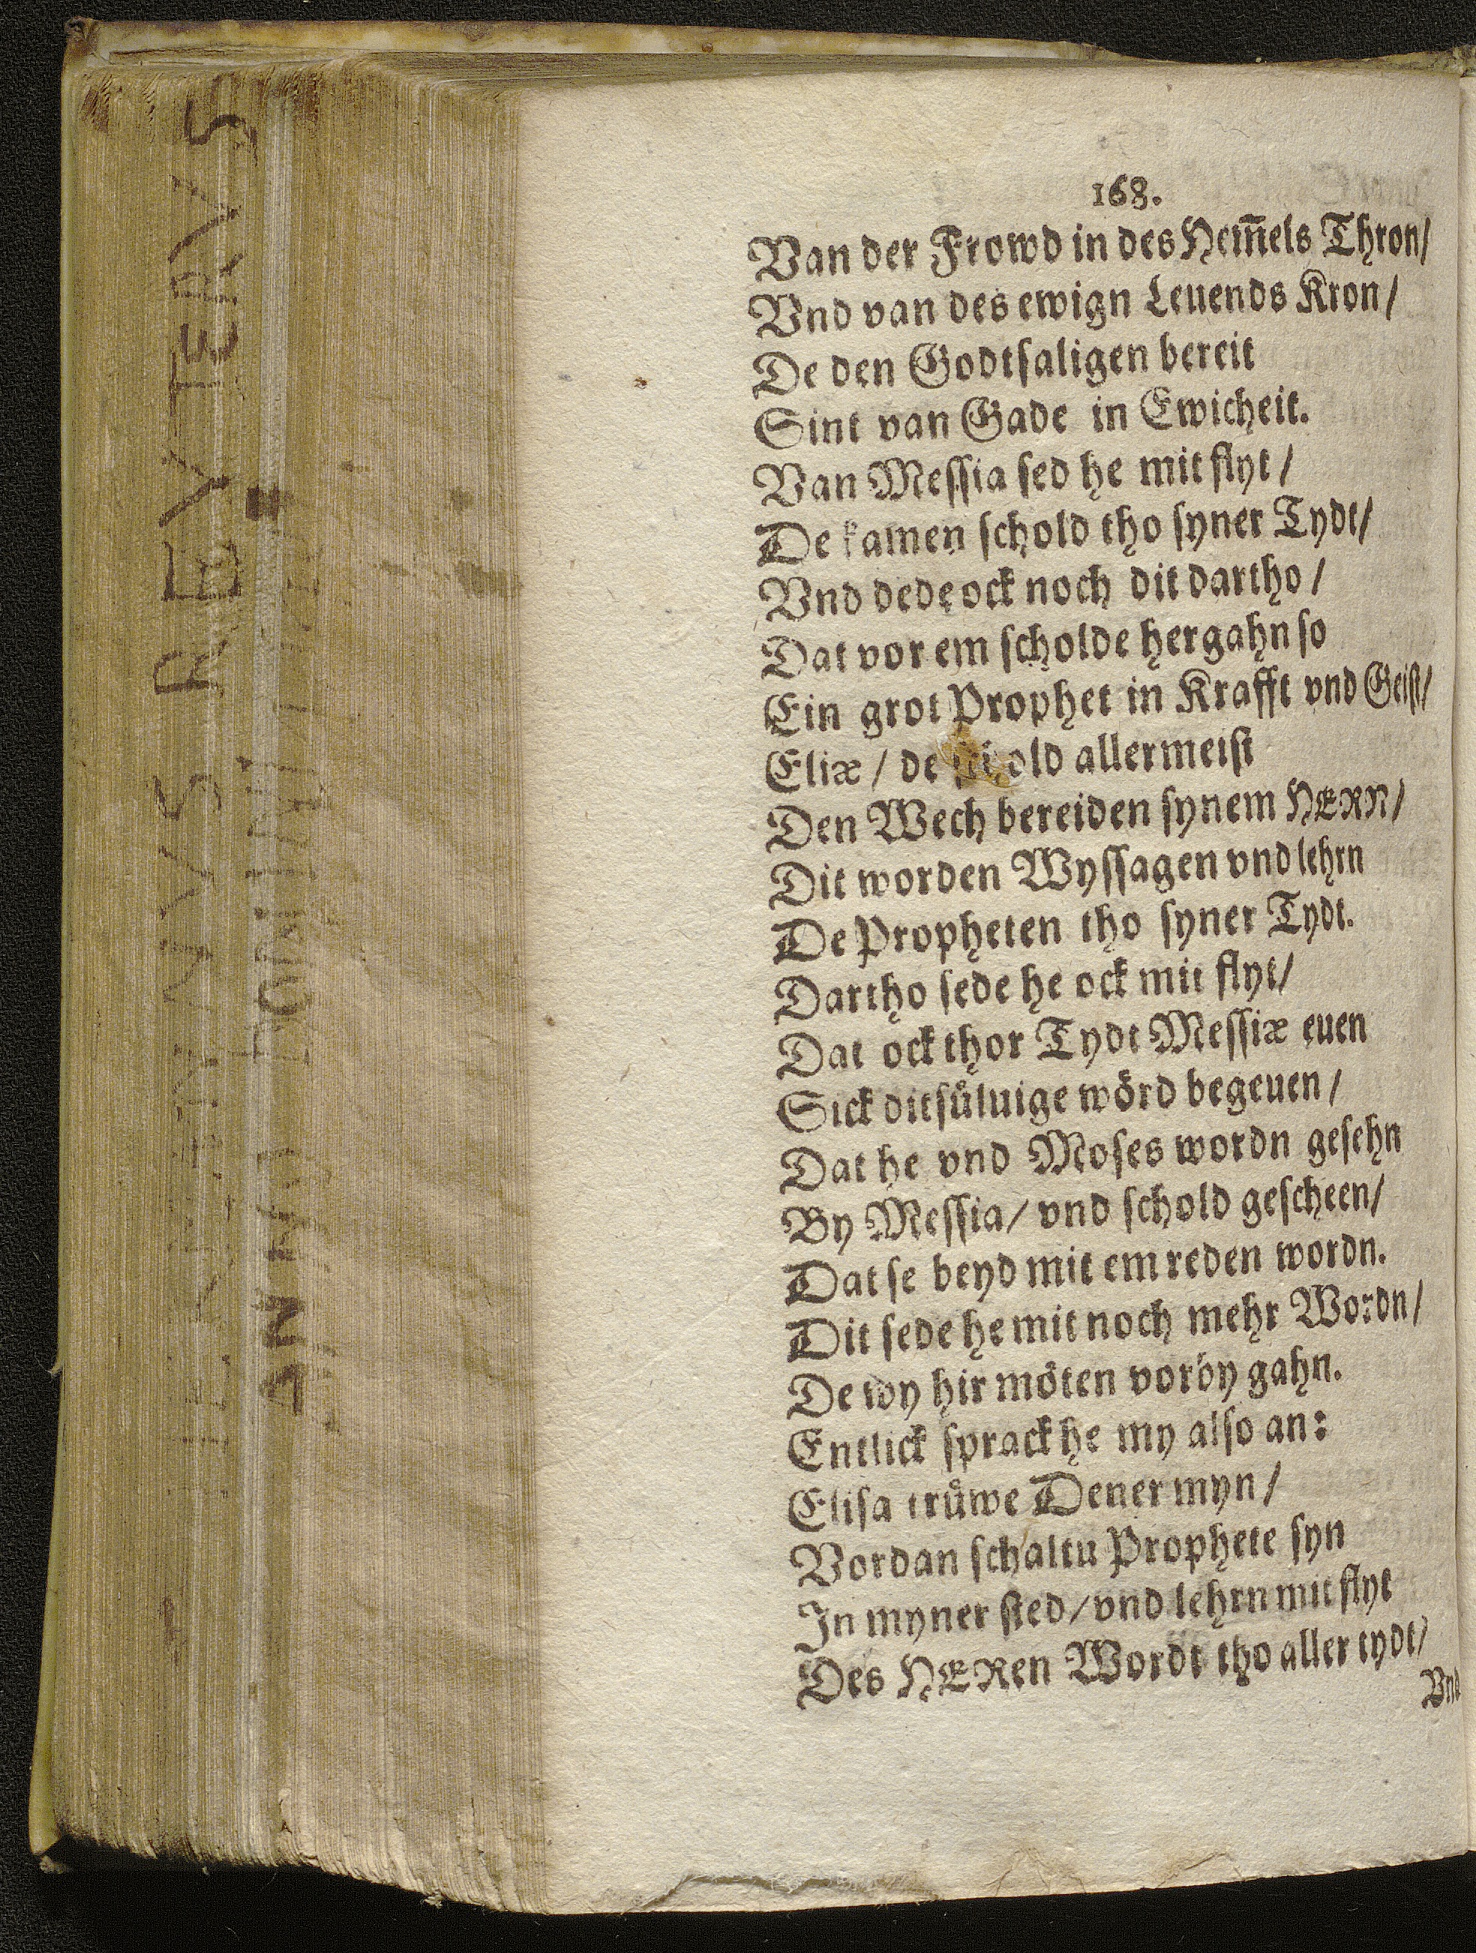 168.
Van der Frowd in des Hem̅els Thron/
Vnd van des ewign Leuends Kron/
De den Godtsaligen bereit
Sint van Gade in Ewicheit.
Van Messia sed he mit flyt/
De kamen schold tho syner Tydt/
Vnd dede ock noch dit dartho/
Dat vor em scholde hergahn so
Ein grot Prophet in Krafft vnd Geist/
Eliæ/ de schold allermeist
Den Wech bereiden synem HERN/
Dit worden Wyssagen vnd lehrn
De Propheten tho syner Tydt.
Dartho sede he ock mit flyt/
Dat ock thor Tydt Messiæ euen
Sick ditsůluige wörd begeuen/
Dat he vnd Moses wordn gesehn
By Messia/ vnd schold gescheen/
Dat se beyd mit em reden wordn.
Dit sede he mit noch mehr Wordn/
De wy hir möten vorby gahn.
Entlick sprack he my also an:
Elisa trůwe Dener myn/
Vordan schaltu Prophete syn
In myner sted/ vnd lehrn mit flyt
Des HERen Wordt tho aller tydt/
Vnd
REVTERVS
ANNO DOMINI